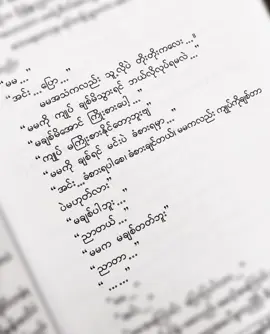 “မမ ...”
“အင်း ... ပြော ...”
မမအသံကလည်း သူ့လိုပဲ တိုးတိုးကလေး ...။
“မမကို ကျုပ် ချစ်မိသွားရင် ဘယ်လိုလုပ်ရမလဲ ...”
“မချစ်မိအောင် ကြိုးစားပေါ့ ...”
“ကျုပ် မကြိုးစားနိုင်တော့ဘူးဗျ”
“မမကို ချစ်ရင် မင်းပဲ ခံစားရမှာ ...”
“အင်း ... ခံစားရပါစေ၊ ခံစားချင်တယ်၊ မမကလည်း ကျုပ်ကိုချစ်တာ
ပဲမဟုတ်လား”
“မချစ်ပါဘူး ...”
“ညာတယ် ...”
“မမက မချစ်တတ်ဘူး”
“ညာတာ ...”
“... ...”